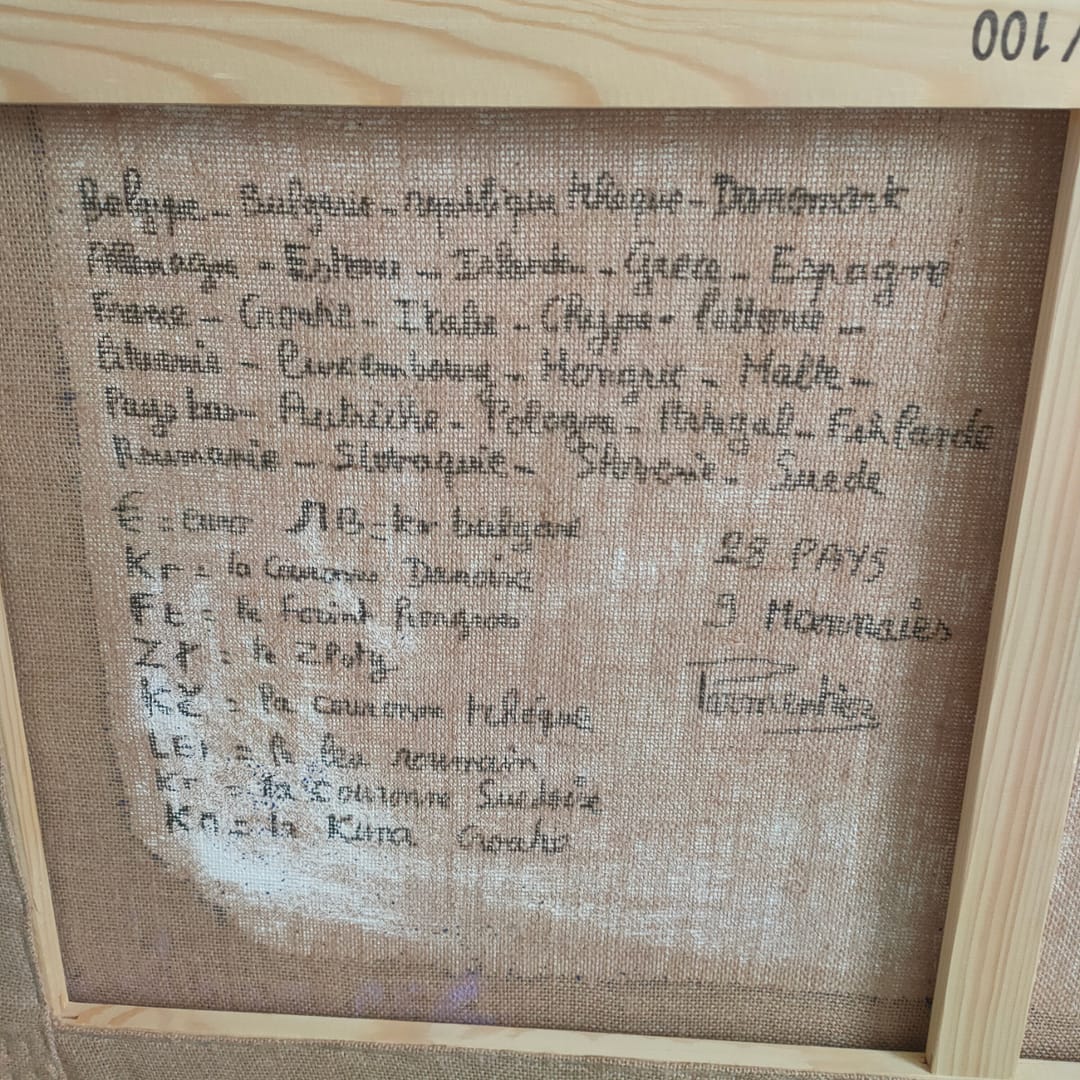 /100
Belgique - Bulgarie - république tchèque - Danemark
Allemagne - Estonie - Irlande - Grece - Espagne
France - Croatie - Italie - Chyppe - Lettonie -
Lituanie - Luxembourg - Hongrie - Malte -
Pays bas - Autriche - Pologne - Portugal - Finlande
Roumanie - Slovaquie - Slovenie - Suede
€ = euro ЛB = lev bulgare
Kr = la Couronne Danoise
Ft = le forint hongrois
Zł = le Zloty
Kč = la couronne tchèque
LEI = le leu roumain
Kr = la Couronne Suedoise
Kn = la Kuna Croate
28 PAYS
9 Monnaies
Parmentier